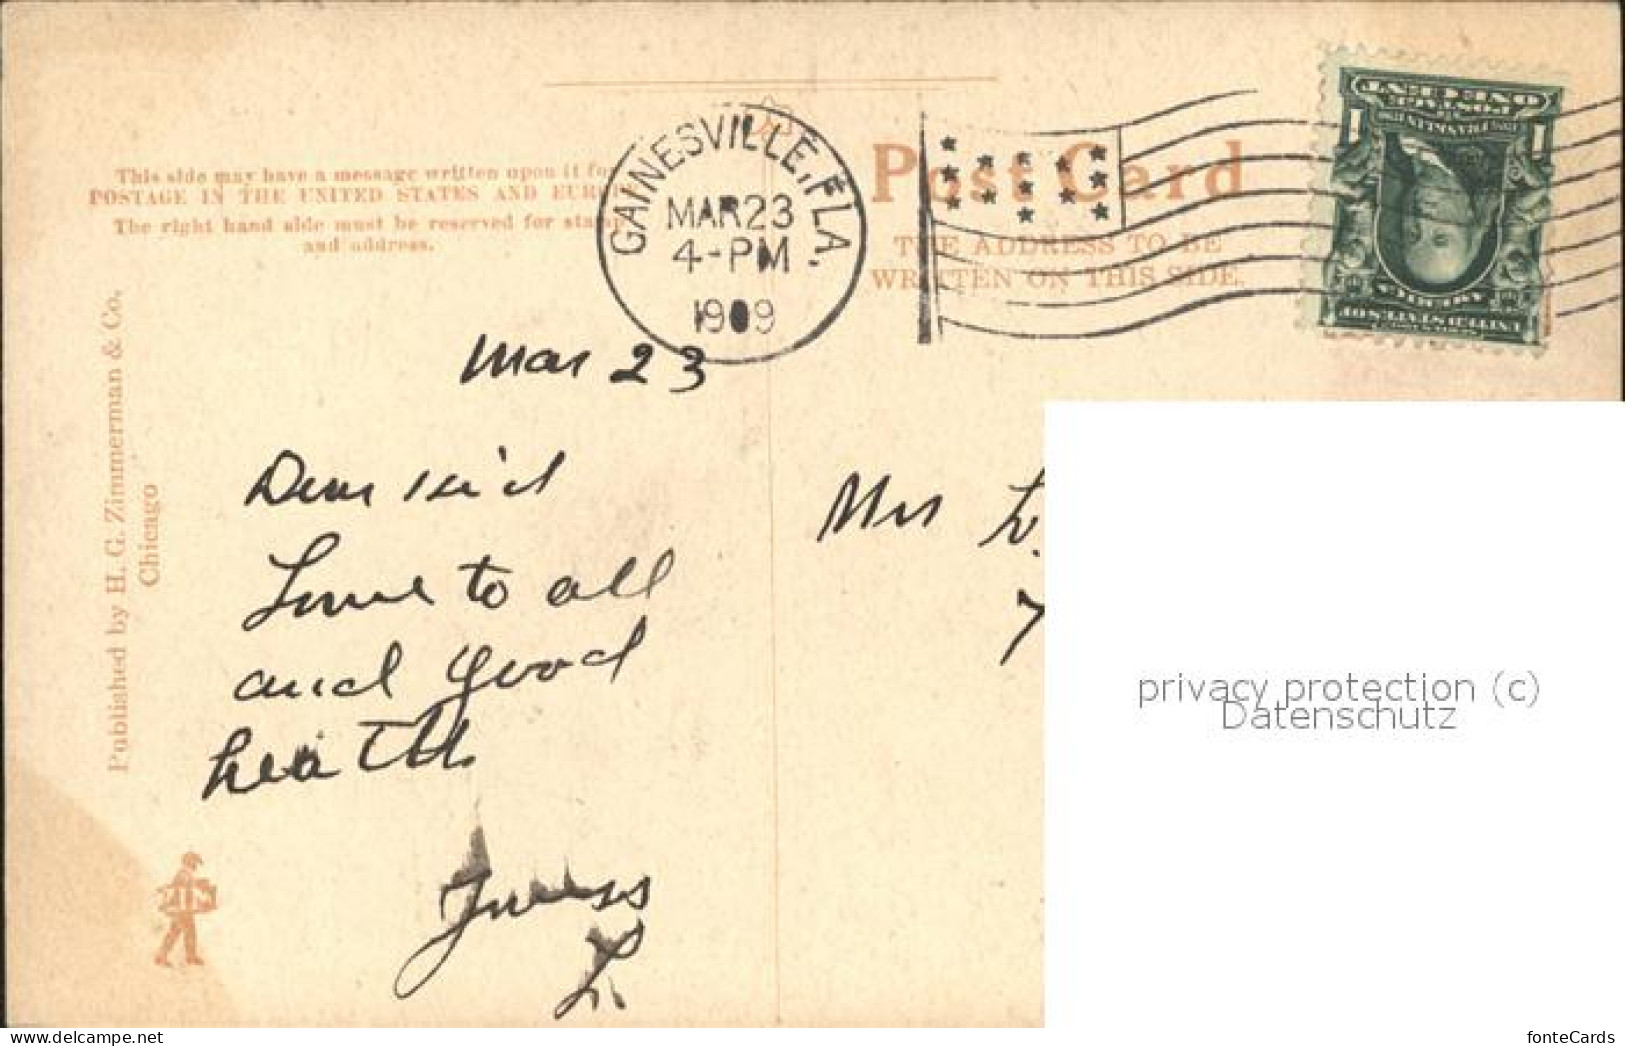 This side may have a message written upon it for
POSTAGE IN THE UNITED STATES AND EURO
The right hand side must be reserved for stamp
and address.
GAINESVILLE, FLA.
MAR 23
4-PM
1909
Post Card
THE ADDRESS TO BE
WRITTEN ON THIS SIDE.
ONE CENT
POSTAGE
1 1
FRANKLIN
UNITED STATES OF
AMERICA
Published by H. G. Zimmerman & Co.,
Chicago
Mar 23
Dear Kid
Love to all
and good
health
L.
Mrs L.
privacy protection (c)
Datenschutz
www.delcampe.net
fonteCards